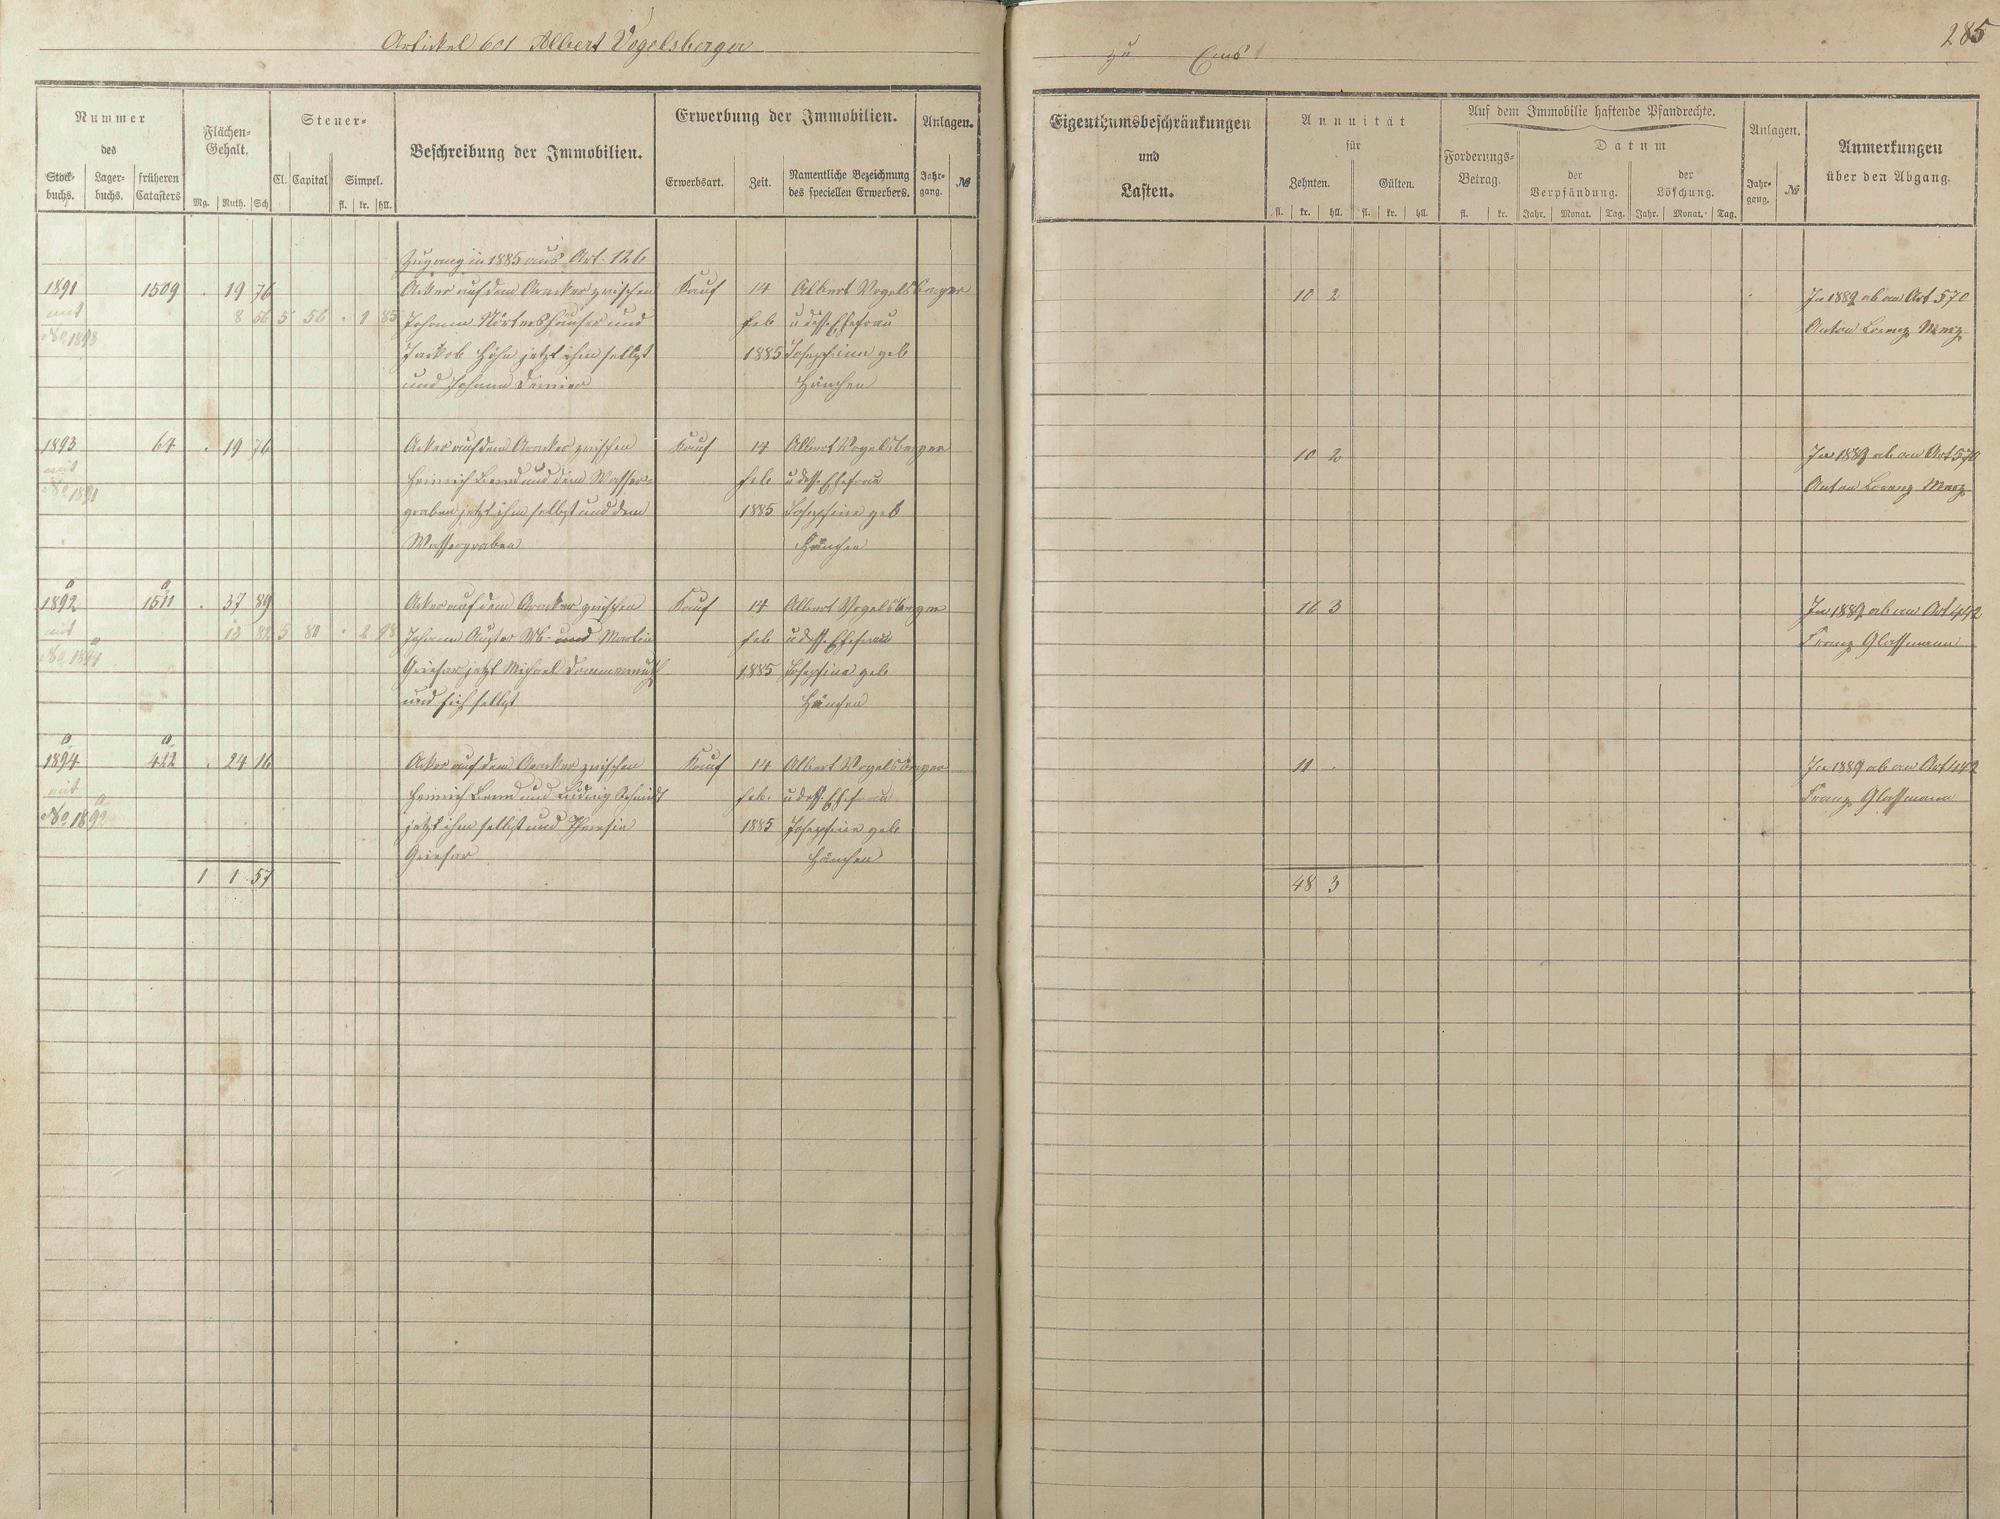 Artickel 601 Albert Vogelsberger
zu Ems
285
Nummer
des
Stock-buchs.
Lager-buchs.
früheren Catasters
Flächen-Gehalt.
Mg. Ruth. Sch
Steuer-
Cl. Capital Simpel.
fl. kr. hll.
Beschreibung der Immobilien.
Erwerbung der Immobilien.
Erwerbsart. Zeit.
Namentliche Bezeichnung
des speciellen Erwerbers.
Anlagen.
Jahr-gang. №
Eigenthumsbeschränkungen
und
Lasten.
Annuität
für
Zehnten. Gülten.
fl. kr. hll. fl. kr. hll.
Auf dem Immobilie haftende Pfandrechte.
Forderungs-
Betrag.
fl. kr.
Datum
der Verpfändung.
Jahr. Monat. Tag.
der Löschung.
Jahr. Monat. Tag.
Anlagen.
Jahr-gang. №
Anmerkungen
über den Abgang.
Zugang in 1885 aus Art. 126
1891 1509 . 19 76 Acker auf dem Aacker zwischen Kauf 14 Albert Vogelsberger 10 2 In 1889 ab an Art 570
mit 8 56 5 56 . 1 85 Johann Nörtershäuser und Feb u dess Ehefrau Anton Lorenz Merz
No 1893 Jackob Höhn jetzt ihm selbst 1885 Josephine geb
und Johann Hänchen
1893 64 . 19 76 Acker auf dem Aacker zwischen Kauf 14 Albert Vogelsberger 10 2 In 1889 ab an Art 570
mit Heinrich und dem Wasser- Feb u dess Ehefrau Anton Lorenz Merz
No 1891 graben jetzt ihm selbst und dem 1885 Josephine geb
Wassergraben Hänchen
1892 a 1511 a . 37 89 Acker auf dem Aacker zwischen Kauf 14 Albert Vogelsberger 16 3 In 1889 ab an Art 442
mit 5 80 . 2 98 Johann und Martin Feb u dess. Ehefrau Franz Glassmann
No 1894 a Griesar jetzt Michael 1885 Josephine geb
und sich selbst Hänchen
1894 a 422 a . 24 16 Acker auf dem Aacker zwischen Kauf 14 Albert Vogelsberger 11 . In 1889 ab an Art 442
mit Heinrich und Ludwig Schmidt Feb. u dess. Ehefrau Franz Glassmann
No 1892 a jetzt ihm selbst und 1885 Josephine geb
Griesar Hänchen
1 1 57 48 3